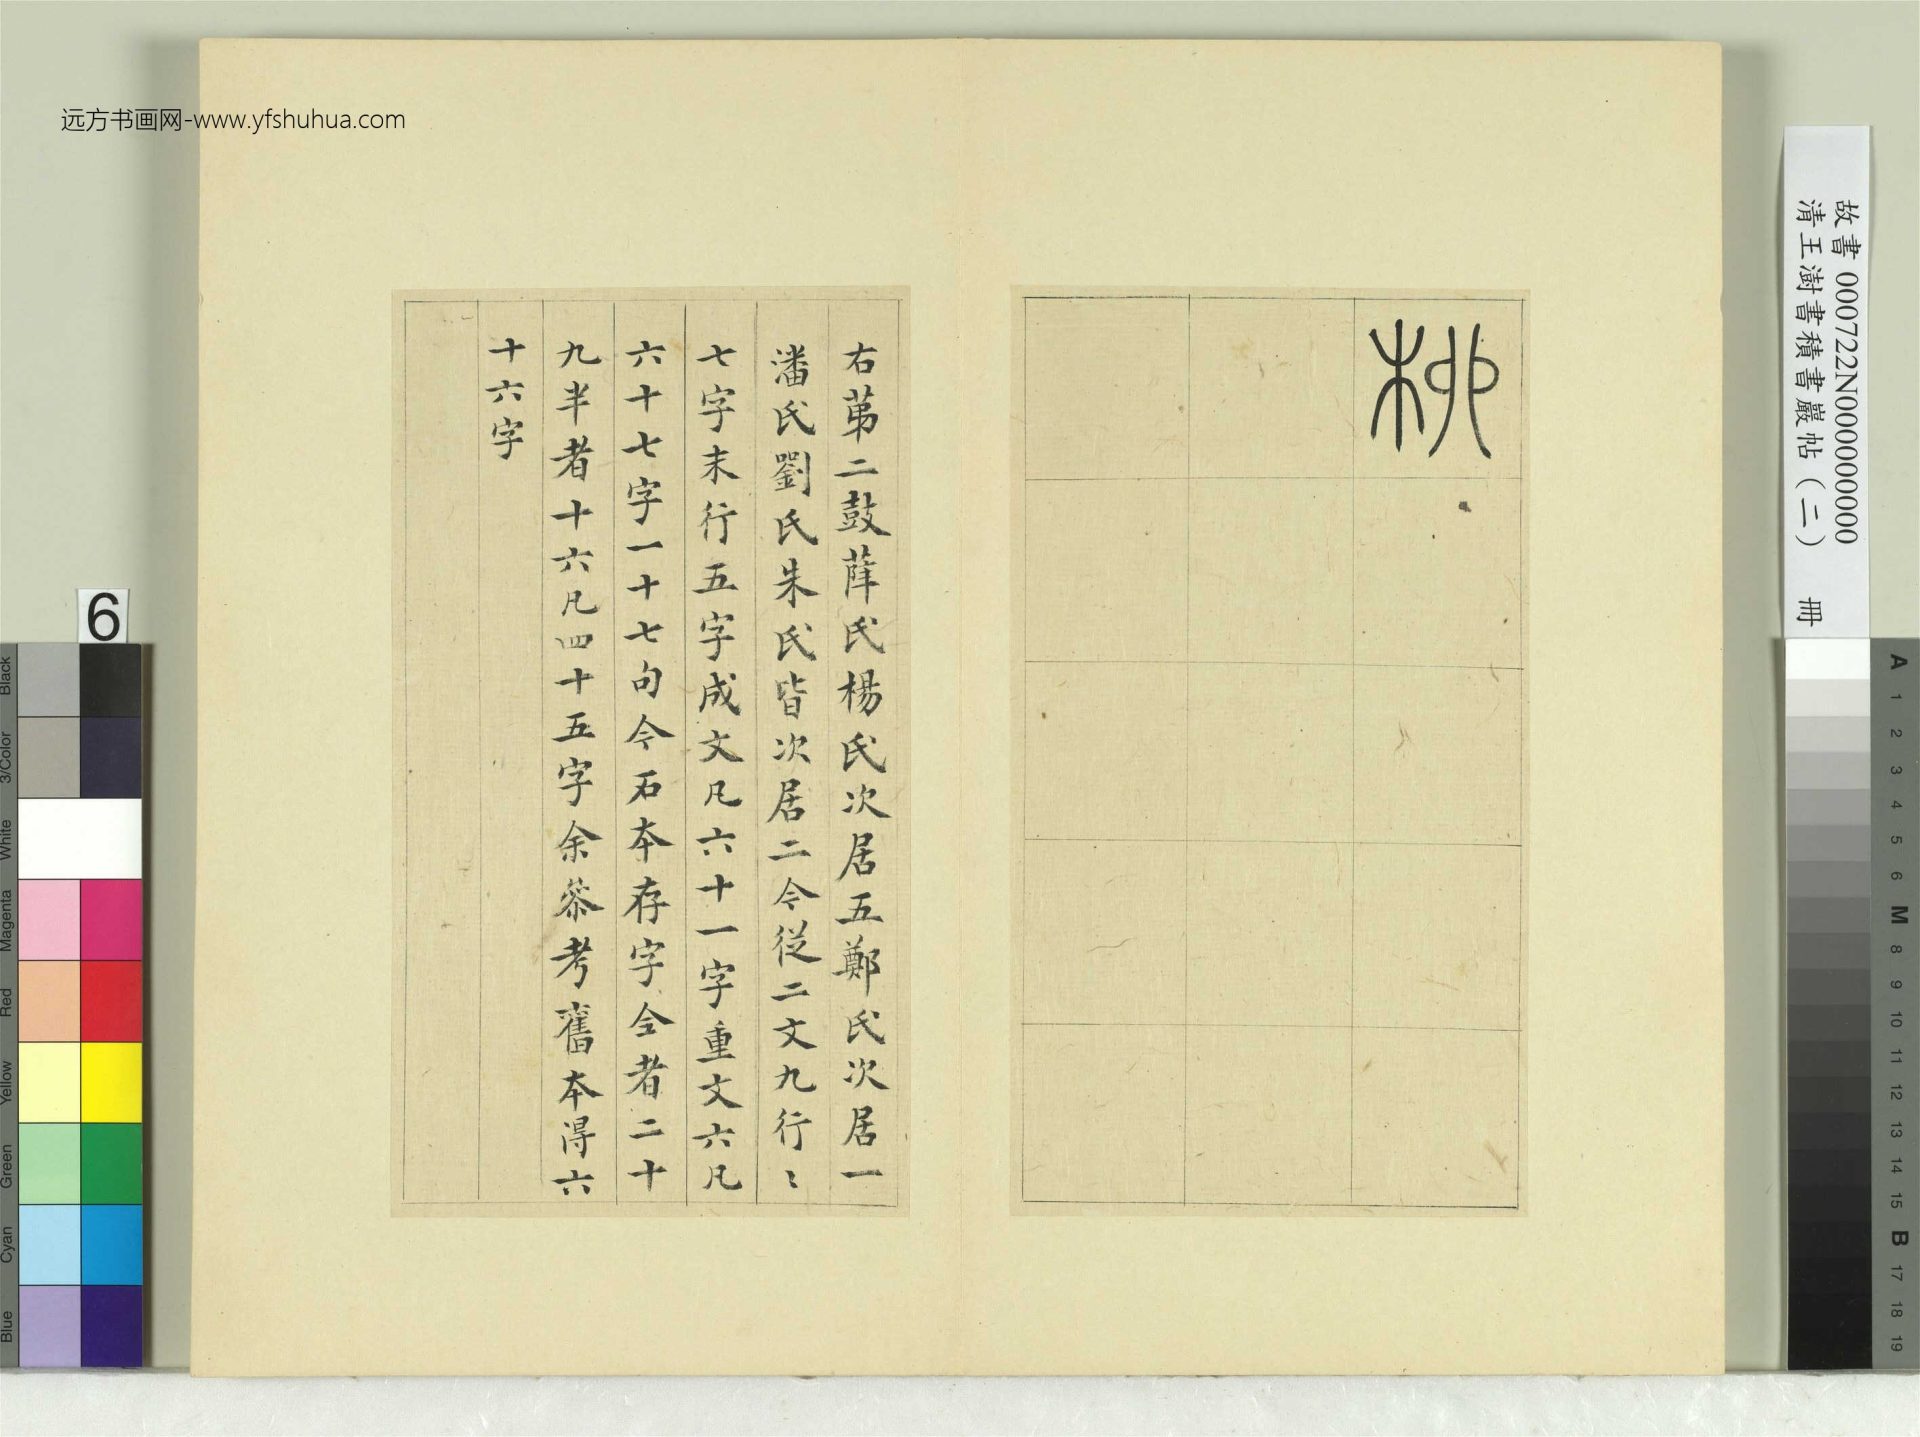 远方书画网-www.yfshuhua.com
故書 000722N000000000
清王澍書積書巖帖（二）　冊
右苐二鼓薛氏楊氏次居五鄭氏次居一
潘氏劉氏朱氏皆次居二今從二文九行〻
七字末行五字成文凡六十一字重文六凡
六十七字一十七句今石本存字全者二十
九半者十六凡四十五字余叅考舊本得六
十六字
6
Black
3/Color
White
Magenta
Red
Yellow
Green
Cyan
Blue
A
1
2
3
4
5
6
M
8
9
10
11
12
13
14
15
B
17
18
19